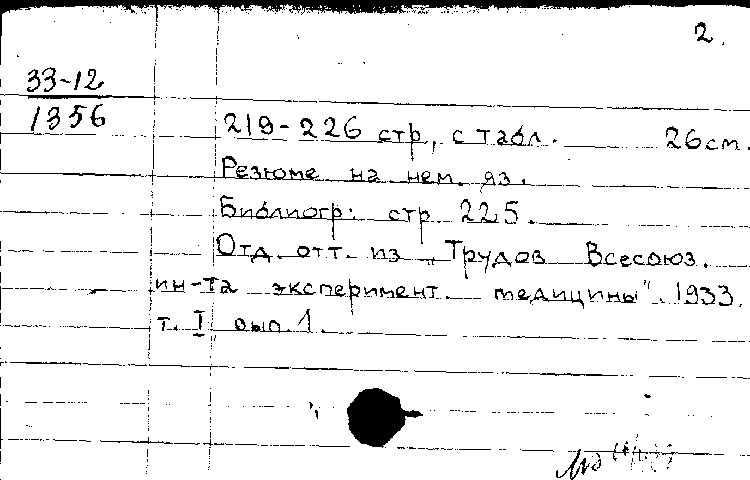 2.
33-12
1356
219-226 стр., с табл. 26 см.
Резюме на нем. яз.
Библиогр: стр 225.
Отд. отт. из „Трудов Всесоюз.
ин-та эксперимент. медицины". 1933.
т. I вып. 1.